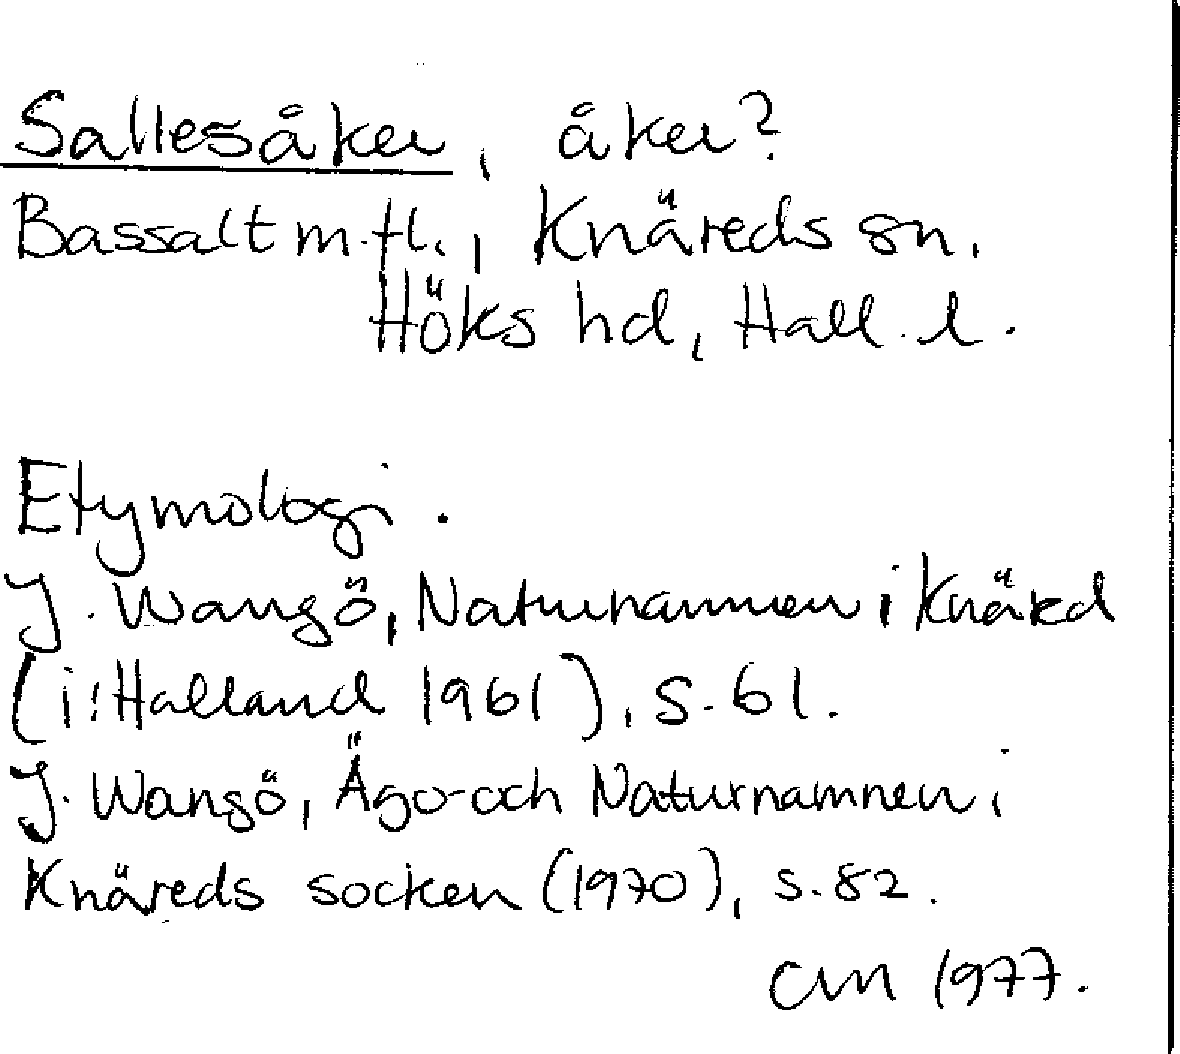 Sallesåker, åker?
Bassalt m.fl., Knäreds sn.
Höks hd, Hall. l.
Etymologi.
J. Wangö, Naturnamnen i Knäred
(i: Halland 1961), s. 61.
J. Wangö, Ägo- och Naturnamnen i
Knäreds socken (1970), s. 82.
CM 1977.